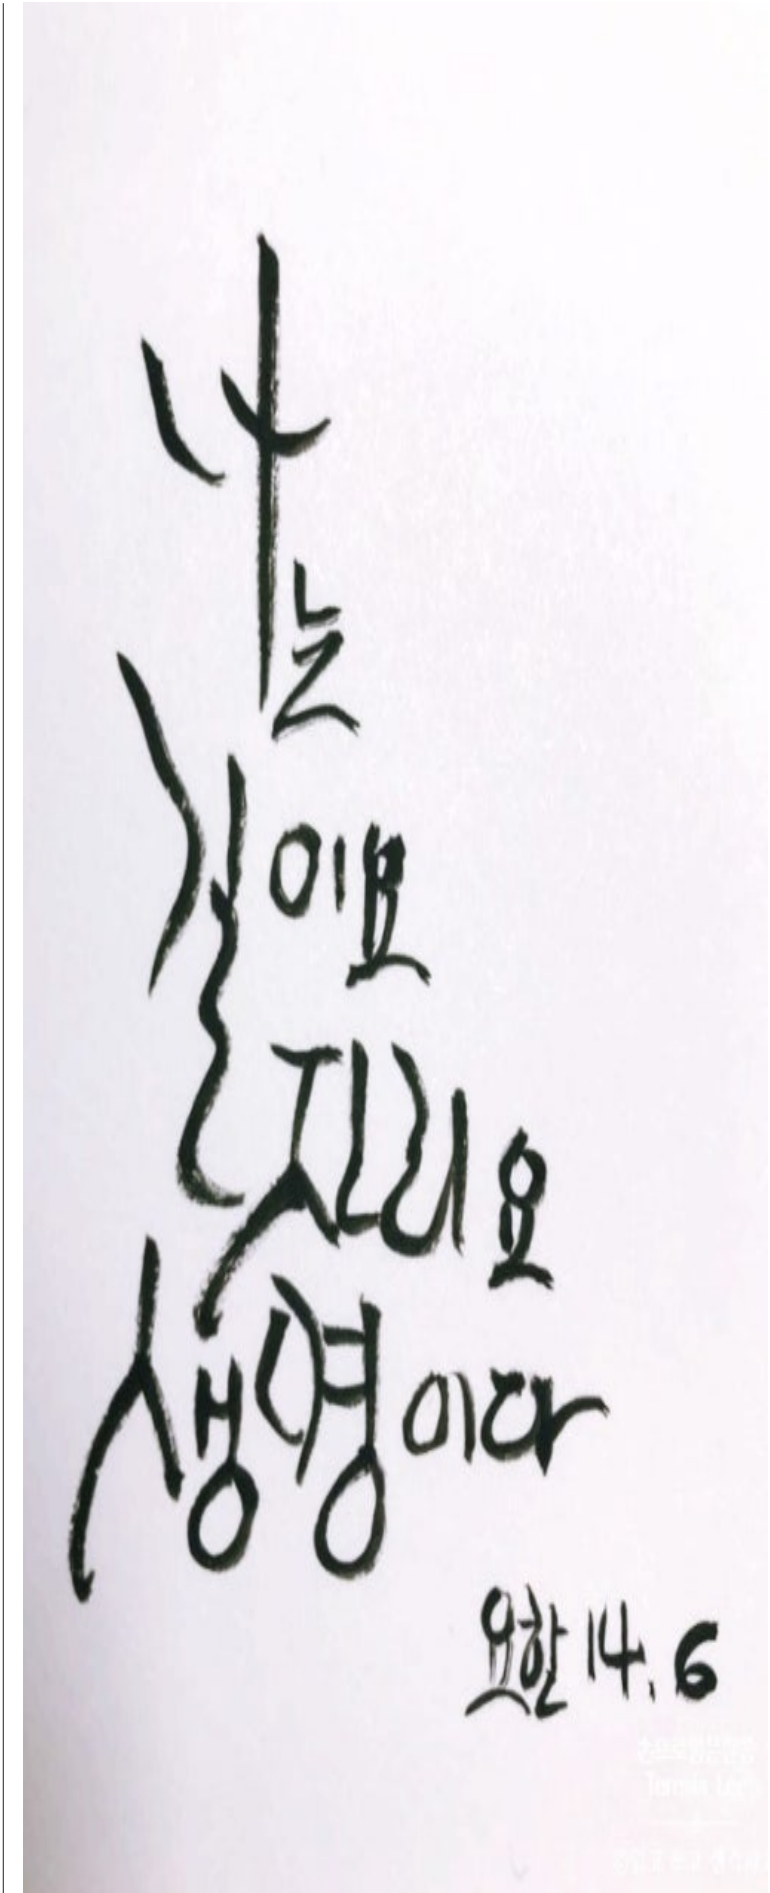 나는
길이요
진리요
생명이다
요한 14. 6